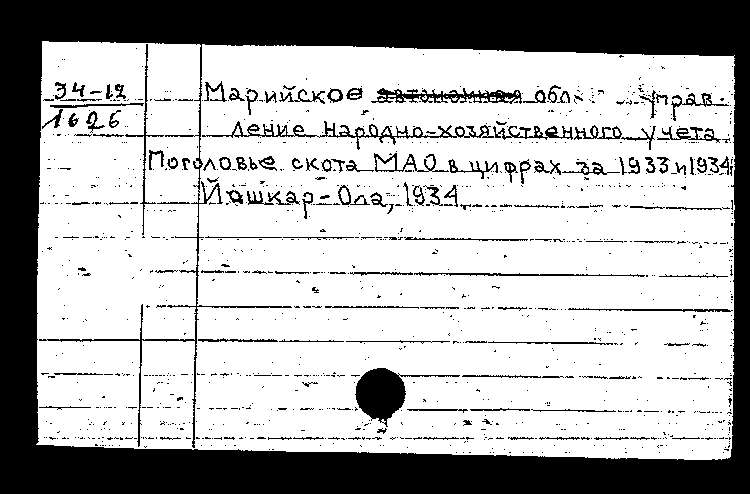 34-12
1626
Марийское автономная обл. управ-
ление народно-хозяйственного учета
Поголовье скота МАО в цифрах за 1933 и 1934
Йошкар-Ола, 1934.